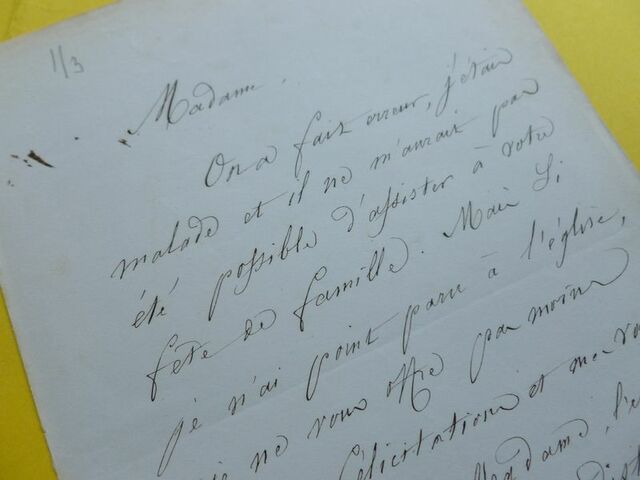 1/3
Madame,
On a fait erreur, j'étais
malade et il ne m'aurait pas
été possible d'assister à votre
fête de famille. Mais Si
je n'ai point paru à l'église,
je ne vous offre pas moins
félicitations et
Madame,